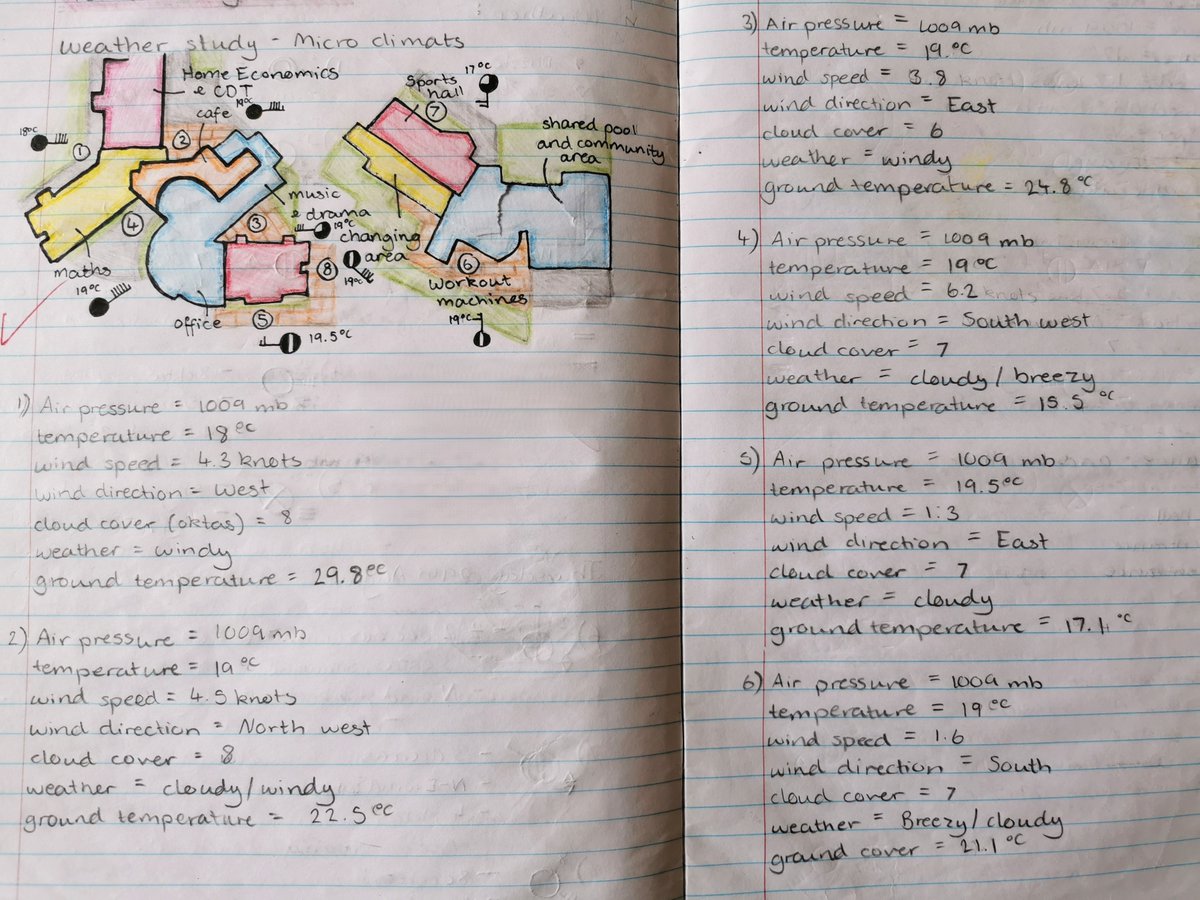 weather study - Micro climats
Home Economics
& CDT
cafe
19°C
18°C
1
2
music
& drama
19°C
3
4
maths
19°C
office
5
19.5°C
17°C
Sports
hall
7
shared pool
and community
area
changing
area
8
19°C
6
workout
machines
19°C
1) Air pressure = 1009 mb
temperature = 18°C
wind speed = 4.3 knots
wind direction = West
cloud cover (oktas) = 8
weather = windy
ground temperature = 29.8°C
2) Air pressure = 1009 mb
temperature = 19°C
wind speed = 4.5 knots
wind direction = North west
cloud cover = 8
weather = cloudy/windy
ground temperature = 22.5°C
3) Air pressure = 1009 mb
temperature = 19.°C
wind speed = 3.8
wind direction = East
cloud cover = 6
weather = windy
ground temperature = 24.8°C
4) Air pressure = 1009 mb
temperature = 19°C
wind speed = 6.2 knots
wind direction = South west
cloud cover = 7
weather = cloudy / breezy
ground temperature = 15.5°C
5) Air pressure = 1009 mb
temperature = 19.5°C
wind speed = 1:3
wind direction = East
cloud cover = 7
weather = cloudy
ground temperature = 17.1°C
6) Air pressure = 1009 mb
temperature = 19°C
wind speed = 1.6
wind direction = South
cloud cover = 7
weather = Breezy/cloudy
ground cover = 21.1°C